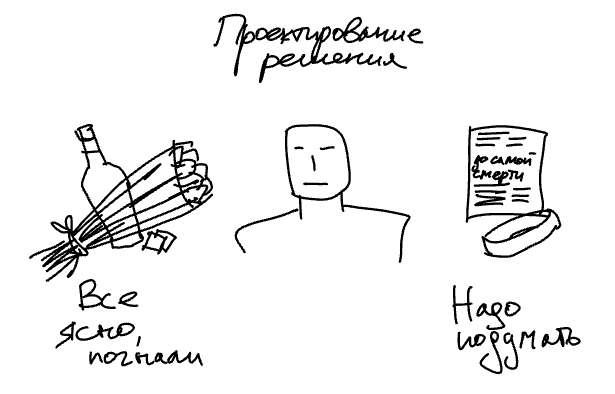 Проектирование
решения
до самой
смерти
Все
ясно,
погнали
Надо
подумать